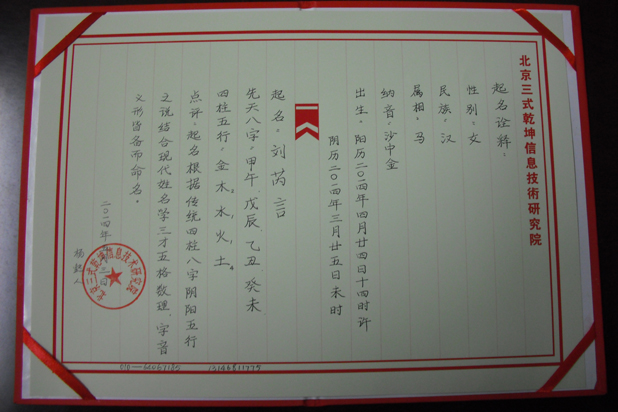 北京三式乾坤信息技術研究院
起名诠释：
性别：女
民族：汉
属相：马
纳音：沙中金
出生：阳历二〇一四年四月廿四日十四时许
阴历二〇一四年三月廿五日未时
起名：刘芮言
先天八字：甲午、戊辰、乙丑 癸未
四柱五行：金 木2 水1 火1 土4
点评：起名根据传统四柱八字阴阳五行
之说结合现代姓名学三才五格数理、字音
义形皆备而命名。
二〇一四年
三日
北京三式乾坤信息技术研究院